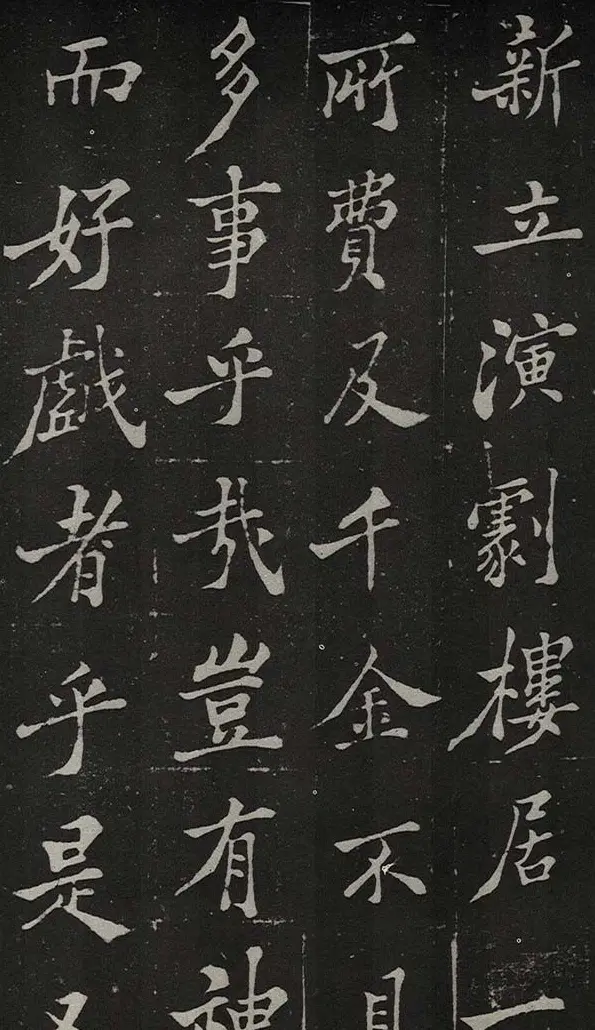 新立演劇樓居一
所費及千金不
多事乎哉豈有神
而好戲者乎是